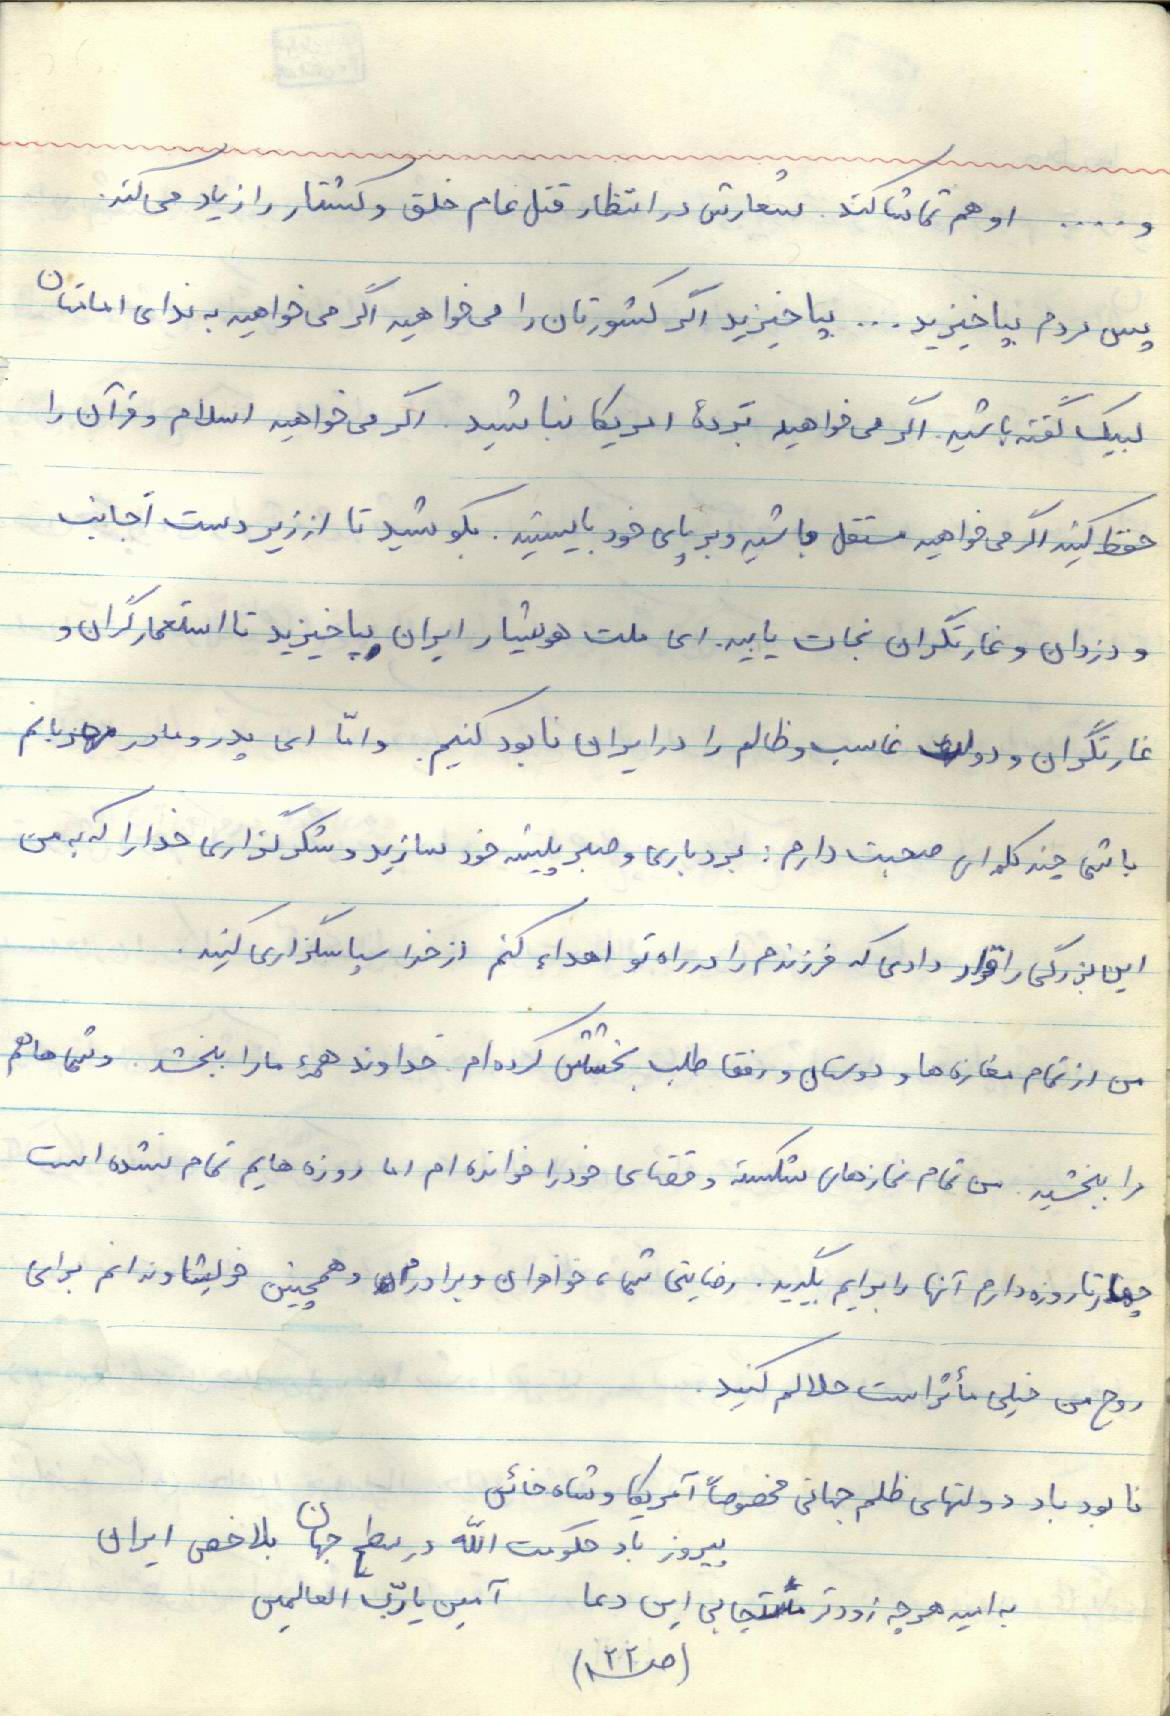 و ..... او هم تماشا کند. شعارش در انتظار قتل عام خلق و کشتار را زیاد می‌کند.
پس مردم بپاخیزید ... بپاخیزید اگر کشورتان را می‌خواهید اگر می‌خواهید به ندای امامتان
لبیک گفته باشید. اگر می‌خواهید بَردۀ امریکا نباشید. اگر می‌خواهید اسلام و قرآن را
حفظ کنید اگر می‌خواهید مستقل باشید و بر پای خود بایستید. بکوشید تا از زیر دست اَجانب
و دزدان و غارتگران نجات یابید. ای ملت هوشیار ایران بپاخیزید تا استعمارگران و
غارتگران و دولت غاسب و ظالم را در ایران نابود کنیم. و امّا ای پدر و مادر مهربانم
با شما چند کلمه‌ای صحبت دارم: بردباری و صبر پیشه خود سازید و شکرگزاری خدا را که به من
این بزرگی را قرار دادی که فرزندم را در راه تو اهداء کنم از خدا سپاسگزاری کنید.
من از تمام مغازه‌ها و دوستان و رفقا طلب بخشش کرده‌ام. خداوند همۀ ما را ببخشد. و شماها هم
مرا ببخشید. من تمام نمازهای شکسته و قضای خود را خوانده‌ام اما روزه‌هایم تمام نشده است
چهارتا روزه دارم آنها را برایم بگیرید. رضایتی شما، خواهران و برادرم و همچنین خویشاوندانم برای
روح من خیلی مأثر است حلالم کنید.
نابود باد دولتهای ظلم جهانی مخصوصاً آمریکا و شاه خائن
پیروز باد حکومت الله در سطح جهان بلاخص ایران
به امید هرچه زودتر مستجابی این دعا آمین یا ربّ العالمین
(ص ۲۲)